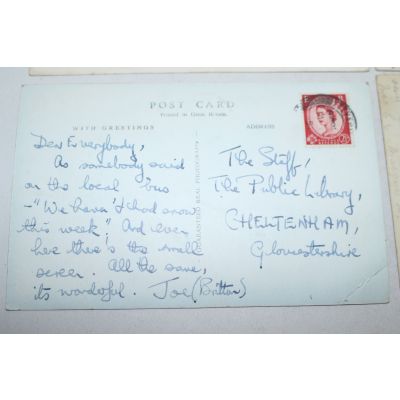 POST CARD
Printed in Great Britain
WITH GREETINGS
ADDRESS
Dear Everybody,
As somebody said
on the local 'bus
- "We haven't had snow
this week". And even
here there's the small
screen. All the same,
its wonderful. Joe (Britton)
GUARANTEED REAL PHOTOGRAPH
The Staff,
The Public Library,
CHELTENHAM,
Gloucestershire